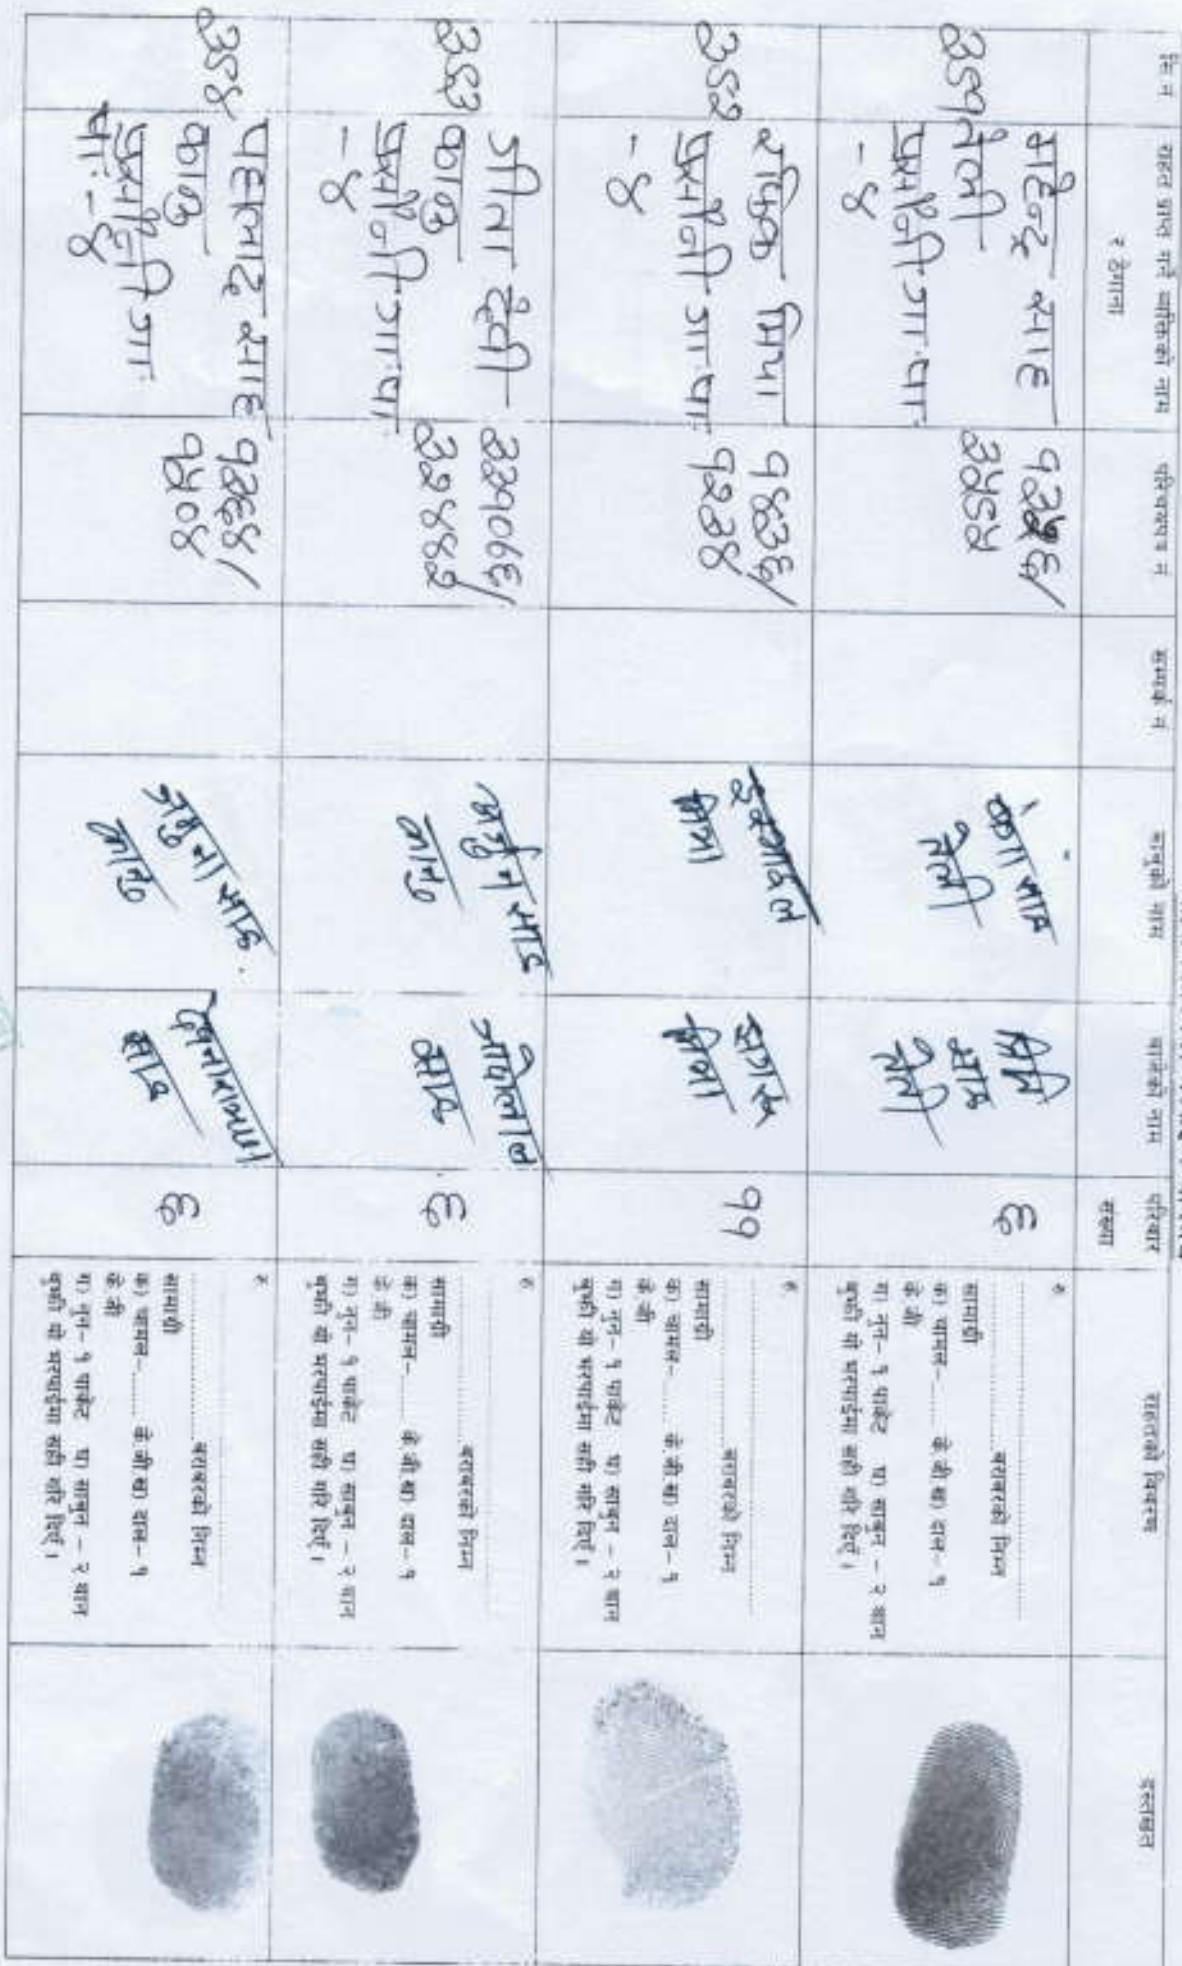 सि न
राहत प्राप्त गर्ने व्यक्तिको नाम
र ठेगाना
परिचयपत्र न
सम्पर्क न
बाबुको नाम
बाजेको नाम
परिवार
संख्या
राहतको विवरण
दस्तखत
३८१
महेन्द्र साह
तेली
प्रसौनी गा पा
- ४
तेली
साह
तेली
६
बराबरको निम्न
सामाग्री
क) चामल-...... के.जी ख) दाल- १
के.जी
ग) नुन- १ पाकेट घ) साबुन - २ थान
बुझी यो भरपाईमा सही गरि दिएँ ।
३८२
रफिक मिया
प्रसौनी गा पा
- ४
१४३६/
१२३४
मिया
मिया
११
बराबरको निम्न
सामाग्री
क) चामल-...... के.जी ख) दाल- १
के.जी
ग) नुन- १ पाकेट घ) साबुन - २ थान
बुझी यो भरपाईमा सही गरि दिएँ ।
३८३
गीता देवी
कानु
प्रसौनी गा पा
- ४
३३१०६६/
३२४४२
अर्जुन साह
कानु
साह
६
बराबरको निम्न
सामाग्री
क) चामल-...... के.जी ख) दाल- १
के.जी
ग) नुन- १ पाकेट घ) साबुन - २ थान
बुझी यो भरपाईमा सही गरि दिएँ ।
३८४
साह
कानु
प्रसौनी गा
पा - ४
१३६४/
१५०४
जमुना साह
कानु
साह
६
बराबरको निम्न
सामाग्री
क) चामल-...... के.जी ख) दाल- १
के.जी
ग) नुन- १ पाकेट घ) साबुन - २ थान
बुझी यो भरपाईमा सही गरि दिएँ ।